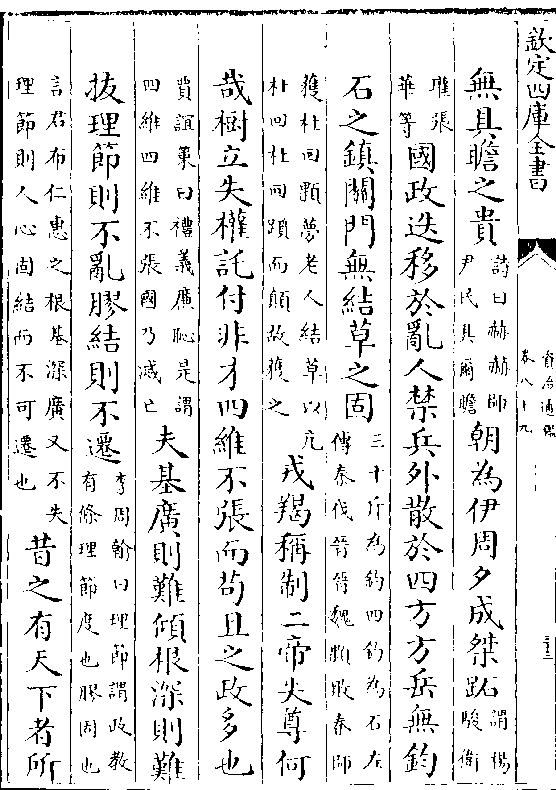 欽定四庫全書
資治通鑑
卷八十九
無具瞻之貴
詩曰赫赫師
尹民具爾瞻
朝為伊周夕成桀跖
謂楊
駿衛
瓘張
華等
國政迭移於亂人禁兵外散於四方方岳無鈞
石之鎮關門無結草之固
三十斤為鈞四鈞為石左
傳秦伐晉晉魏顆敗秦師
獲杜回顆夢老人結草以亢
杜回杜回躓而顛故獲之
戎羯稱制二帝失尊何
哉樹立失權託付非才四維不張而苟且之政多也
賈誼策曰禮義廉恥是謂
四維四維不張國乃滅亡
夫基廣則難傾根深則難
拔理節則不亂膠結則不遷
李周翰曰理節謂政教
有條理節度也膠固也
言君布仁惠之根基深廣又不失
理節則人心固結而不可遷也
昔之有天下者所